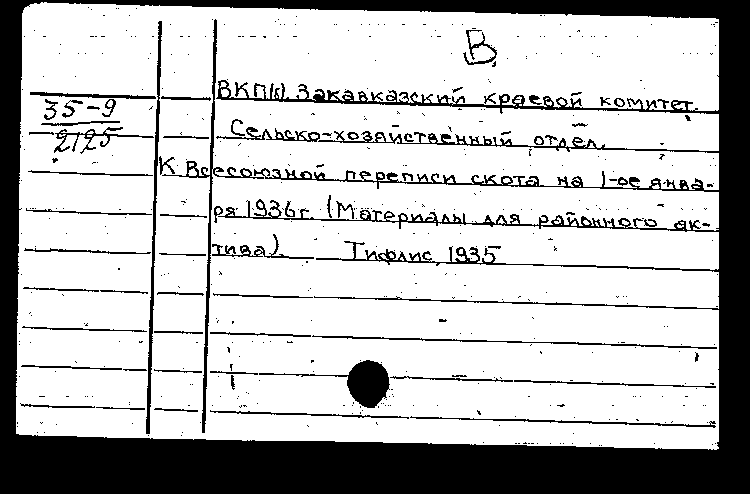 В.
ВКП(б). Закавказский краевой комитет.
35-9
2125
Сельско-хозяйственный отдел.
К Всесоюзной переписи скота на 1-ое янва-
ря 1936 г. (Материалы для районного ак-
тива). Тифлис, 1935